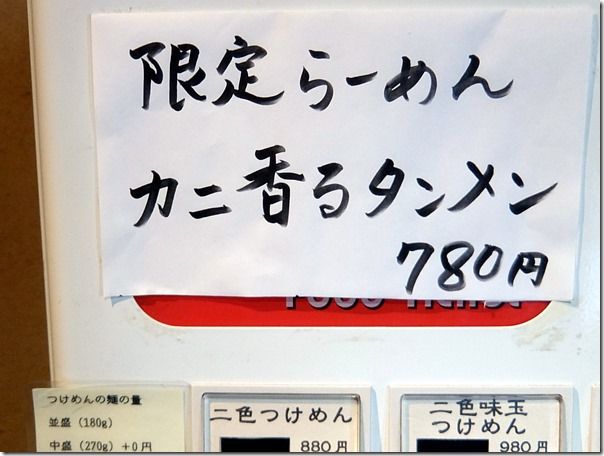 限定らーめん
カニ香るタンメン
780円
つけめんの麺の量
並盛(180g)
中盛(270g)+0円
二色つけめん
880円
二色味玉
つけめん
980円